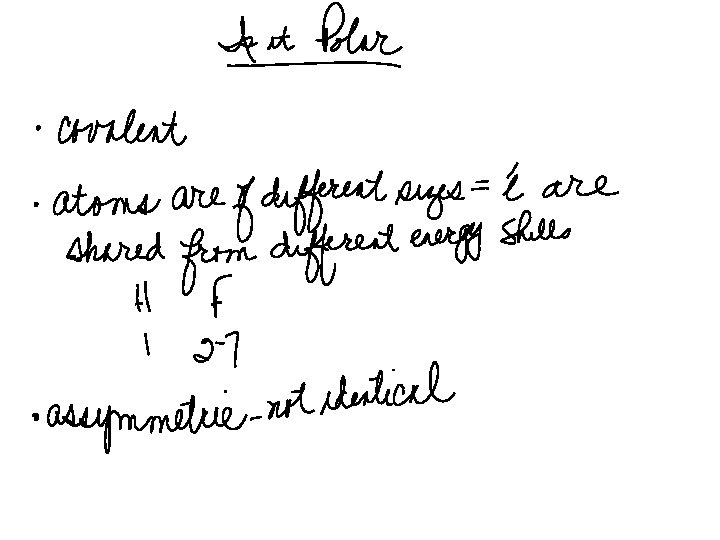 Is it Polar
• covalent
• atoms are of different sizes = é are
shared from different energy shells
H F
1 2-7
• assymmetric - not identical